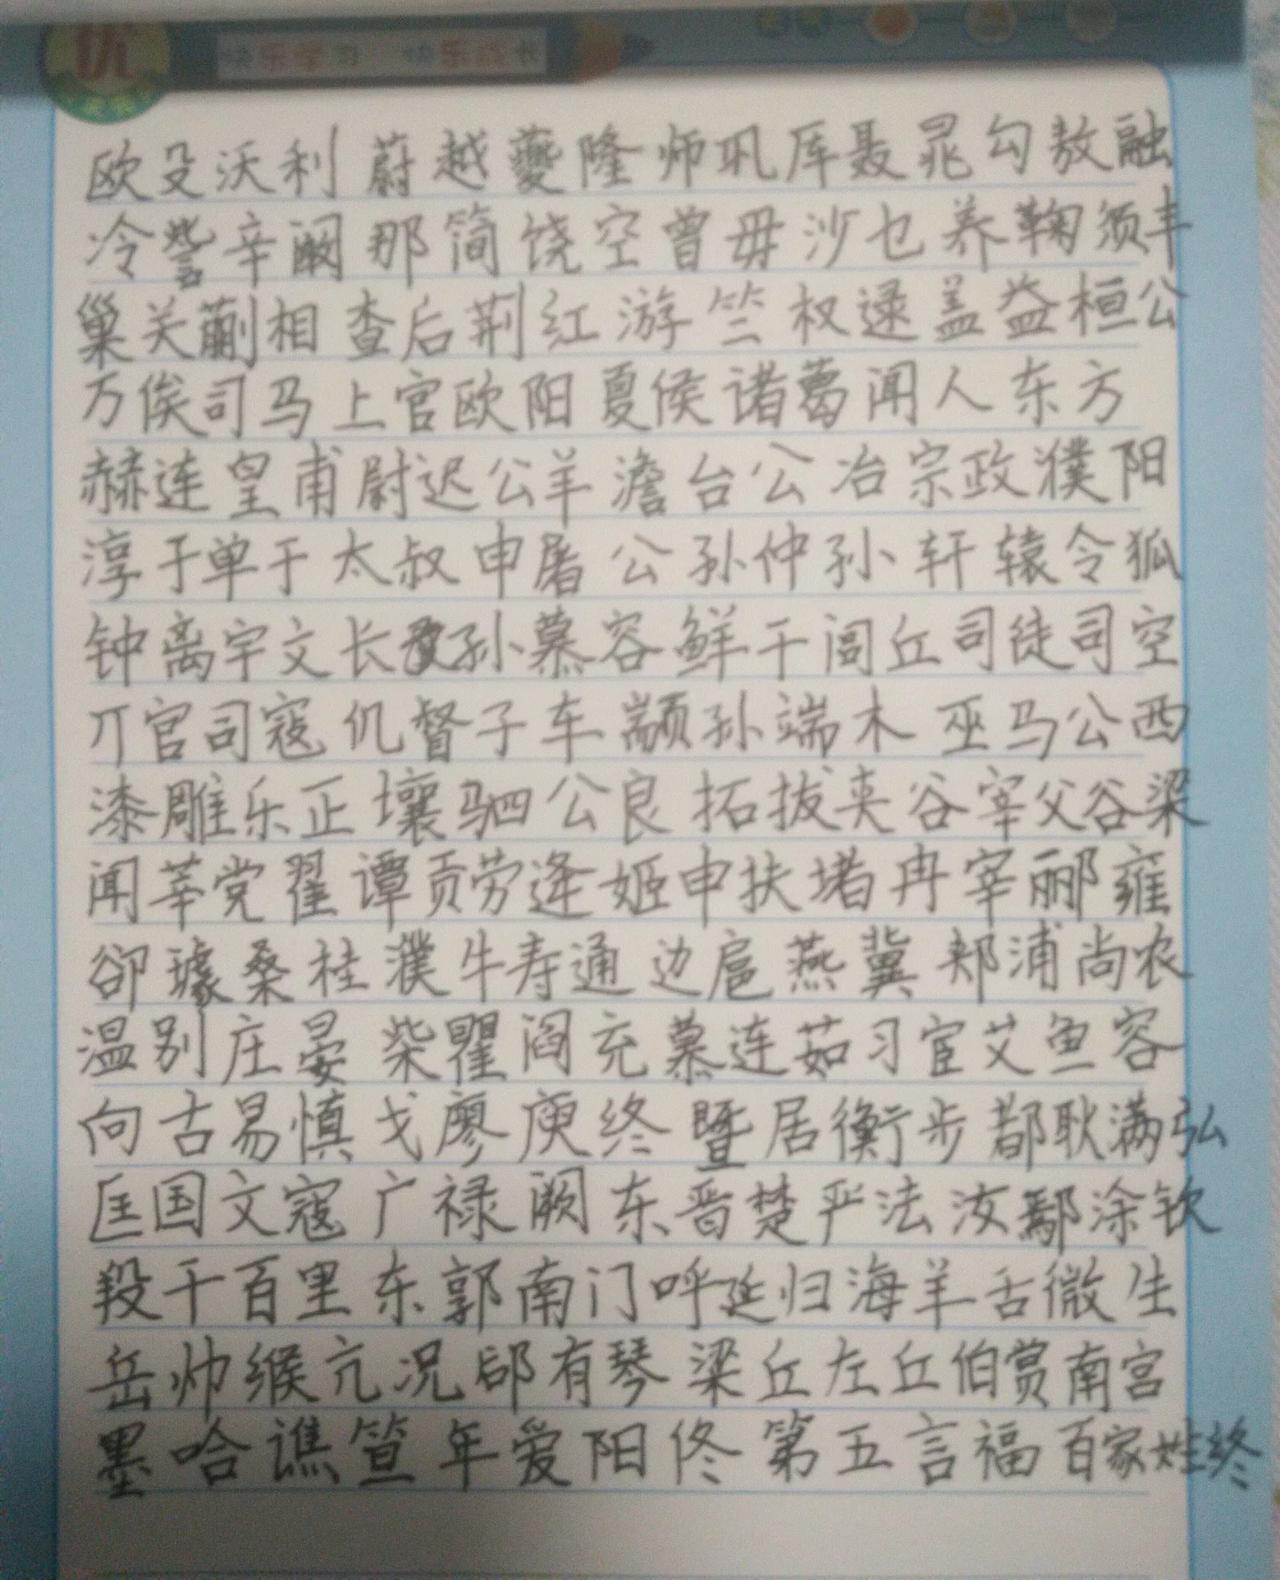 优 快乐学习 快乐成长
欧殳沃利 蔚越夔隆 师巩厍聂 晁勾敖融
冷訾辛阚 那简饶空 曾毋沙乜 养鞠须丰
巢关蒯相 查后荆红 游竺权逯 盖益桓公
万俟司马 上官欧阳 夏侯诸葛 闻人东方
赫连皇甫 尉迟公羊 澹台公冶 宗政濮阳
淳于单于 太叔申屠 公孙仲孙 轩辕令狐
钟离宇文 长孙慕容 鲜于闾丘 司徒司空
丌官司寇 仉督子车 颛孙端木 巫马公西
漆雕乐正 壤驷公良 拓拔夹谷 宰父谷梁
闻莘党翟 谭贡劳逄 姬申扶堵 冉宰郦雍
卻璩桑桂 濮牛寿通 边扈燕冀 郏浦尚农
温别庄晏 柴瞿阎充 慕连茹习 宦艾鱼容
向古易慎 戈廖庾终 暨居衡步 都耿满弘
匡国文寇 广禄阙东 晋楚严法 汝鄢涂钦
段干百里 东郭南门 呼延归海 羊舌微生
岳帅缑亢 况郈有琴 梁丘左丘 伯赏南宫
墨哈谯笪 年爱阳佟 第五言福 百家姓终